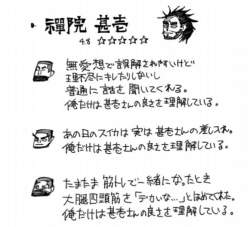 ・禪院 甚壱
4.8 ☆☆☆☆☆
無愛想で誤解されやすいけど
理不尽にキレたりしないし
普通に話を聞いてくれる。
俺だけは甚壱さんの良さを理解している。
あの日のスイカは実は甚壱さんの差し入れ。
俺だけは甚壱さんの良さを理解している。
たまたま筋トレで一緒になったとき
大腿四頭筋を「デカいな…」とほめてくれた。
俺だけは甚壱さんの良さを理解している。